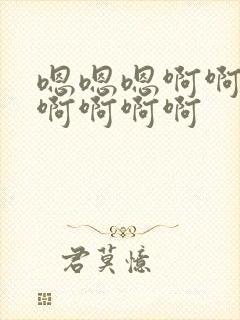 嗯嗯嗯啊啊
啊啊啊啊
君莫憶